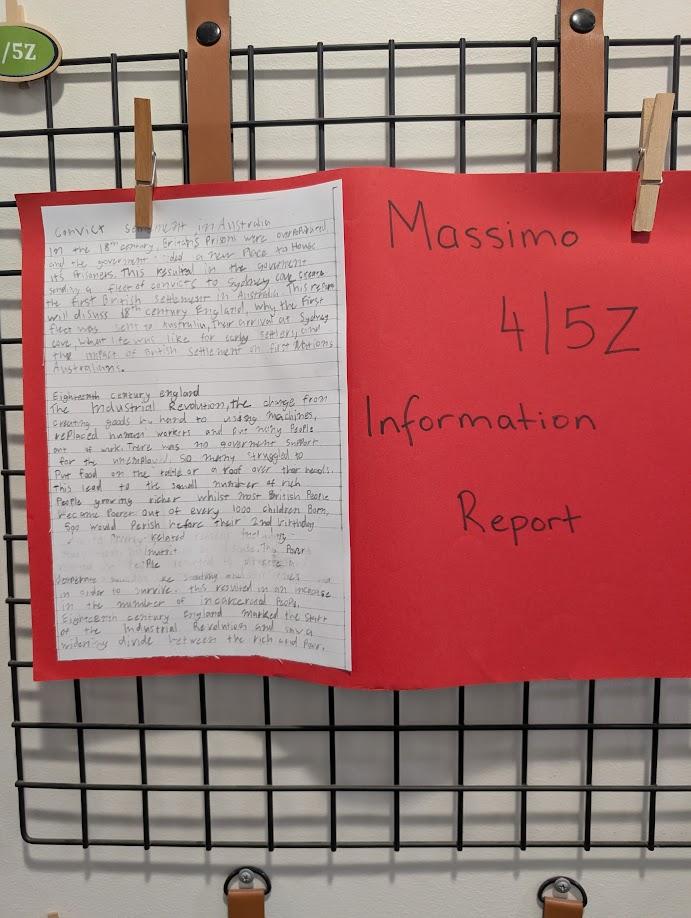 /5Z
Convict settlement in Australia
In the 18th century, Britain's Prisons were overpopulated
and the government needed a new Place to House
its Prisoners. This resulted in the government
sending a fleet of convicts to Sydney cove create
the first British Settlement in Australia. This report
will discuss 18th century England, why the First
fleet was sent to Australia, Their arrival at Sydney
cove, What life was like for early settlers, and
the impact of British Settlement on first Nations
Australians.
Eighteenth century england
The Industrial Revolution, the change from
creating goods by hand to using machines,
replaced human workers and Put many People
out of work. There was no goverment support
for the unemployed, so many struggled to
Put food on the table or a roof over their heads.
This lead to the small number of rich
People growing richer whilst most British People
became Poorer. Out of every 1000 children Born,
500 would Perish before their 2nd birthday
to Poverty Related
The Poor
People
desperate
in order to survive. this resulted in an increase
in the number of incarcerated People.
Eighteenth century England marked the start
of the Industrial Revolution and saw a
widening divide between the rich and Poor.
Massimo
4/5Z
Information
Report